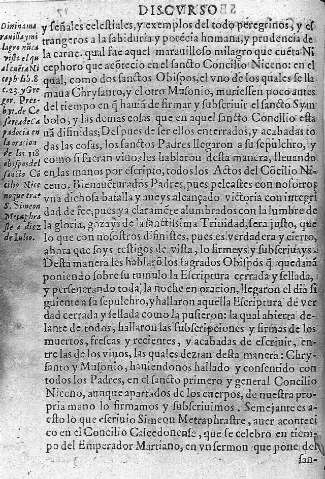 DISCVRSO
y señales celestiales, y exemplos del todo peregrinos, y es-
trangeros a la sabiduria y poechia humana, y prudencia de
la carne. qual fue aquel marauilloso milagro que cuẽta Ni-
cephoro que acõtecio en el sancto Concilio Niceno: en el
qual, como dos sanctos Obispos, el vno de los quales se lla
maua Chrysanto, y el otro Musonio, muriessen poco antes
del tiempo en q̃ hauiã de firmar y subscriuir el sancto Sym
bolo, y las demas cosas que en aquel sancto Concilio esta
uã difinidas. Despues de ser ellos enterrados, y acabadas to
das las cosas, los sanctos Padres llegaron a su sepulchro, y
como si fueran viuos, les hablarou desta manera, lleuando
en las manos por escripto, todos los Actos del Cõcilio Ni-
ceno. Bienauẽturados Padres, pues peleastes con nosotros
vna dichosa batalla y aueys alcançado victoria con integri
dad de fee, pues ya claramẽte alumbrados con la lumbre de
la gloria, gozays de la sanctissima Trinidad, sera justo, que
lo que con nosotros difinistes, pues es verdadera y cierto,
ahora que soys testigos de vista, lo firmeys y subscriuays.
Desta manera les hablarõ los sagrados Obispos q̃ quedauã
poniendo sobre su tumulo la Escriptura cerrada y sellada, i
y perseuerando toda la noche en oracion, llegaron el dia si
guiente a su sepulchro, y hallaron aquella Escriptura de ver
dad cerrada y sellada como la pusieron: la qual abierta de-
lante de todos, hallaron las subscripciones y firmas de los
muertos, frescas y recientes, y acabadas de escriuir, en-
tre las de los viuos, las quales dezian desta manera: Chry-
santo y Musonio, hauiendonos hallado y consentido con
todos los Padres, en el sancto primero y general Concilio
Niceno, aunque apartados de los cuerpos, de nuestra pro-
pria mano lo firmamos y subscriuimos. Semejante es a es-
to lo que escriuio Simeon Metaphrastre, auer acontecido
en el Concilio Calcedonense, que se celebro en tiem-
po del Emperador Martiano, en vn sermon que pone del
san-